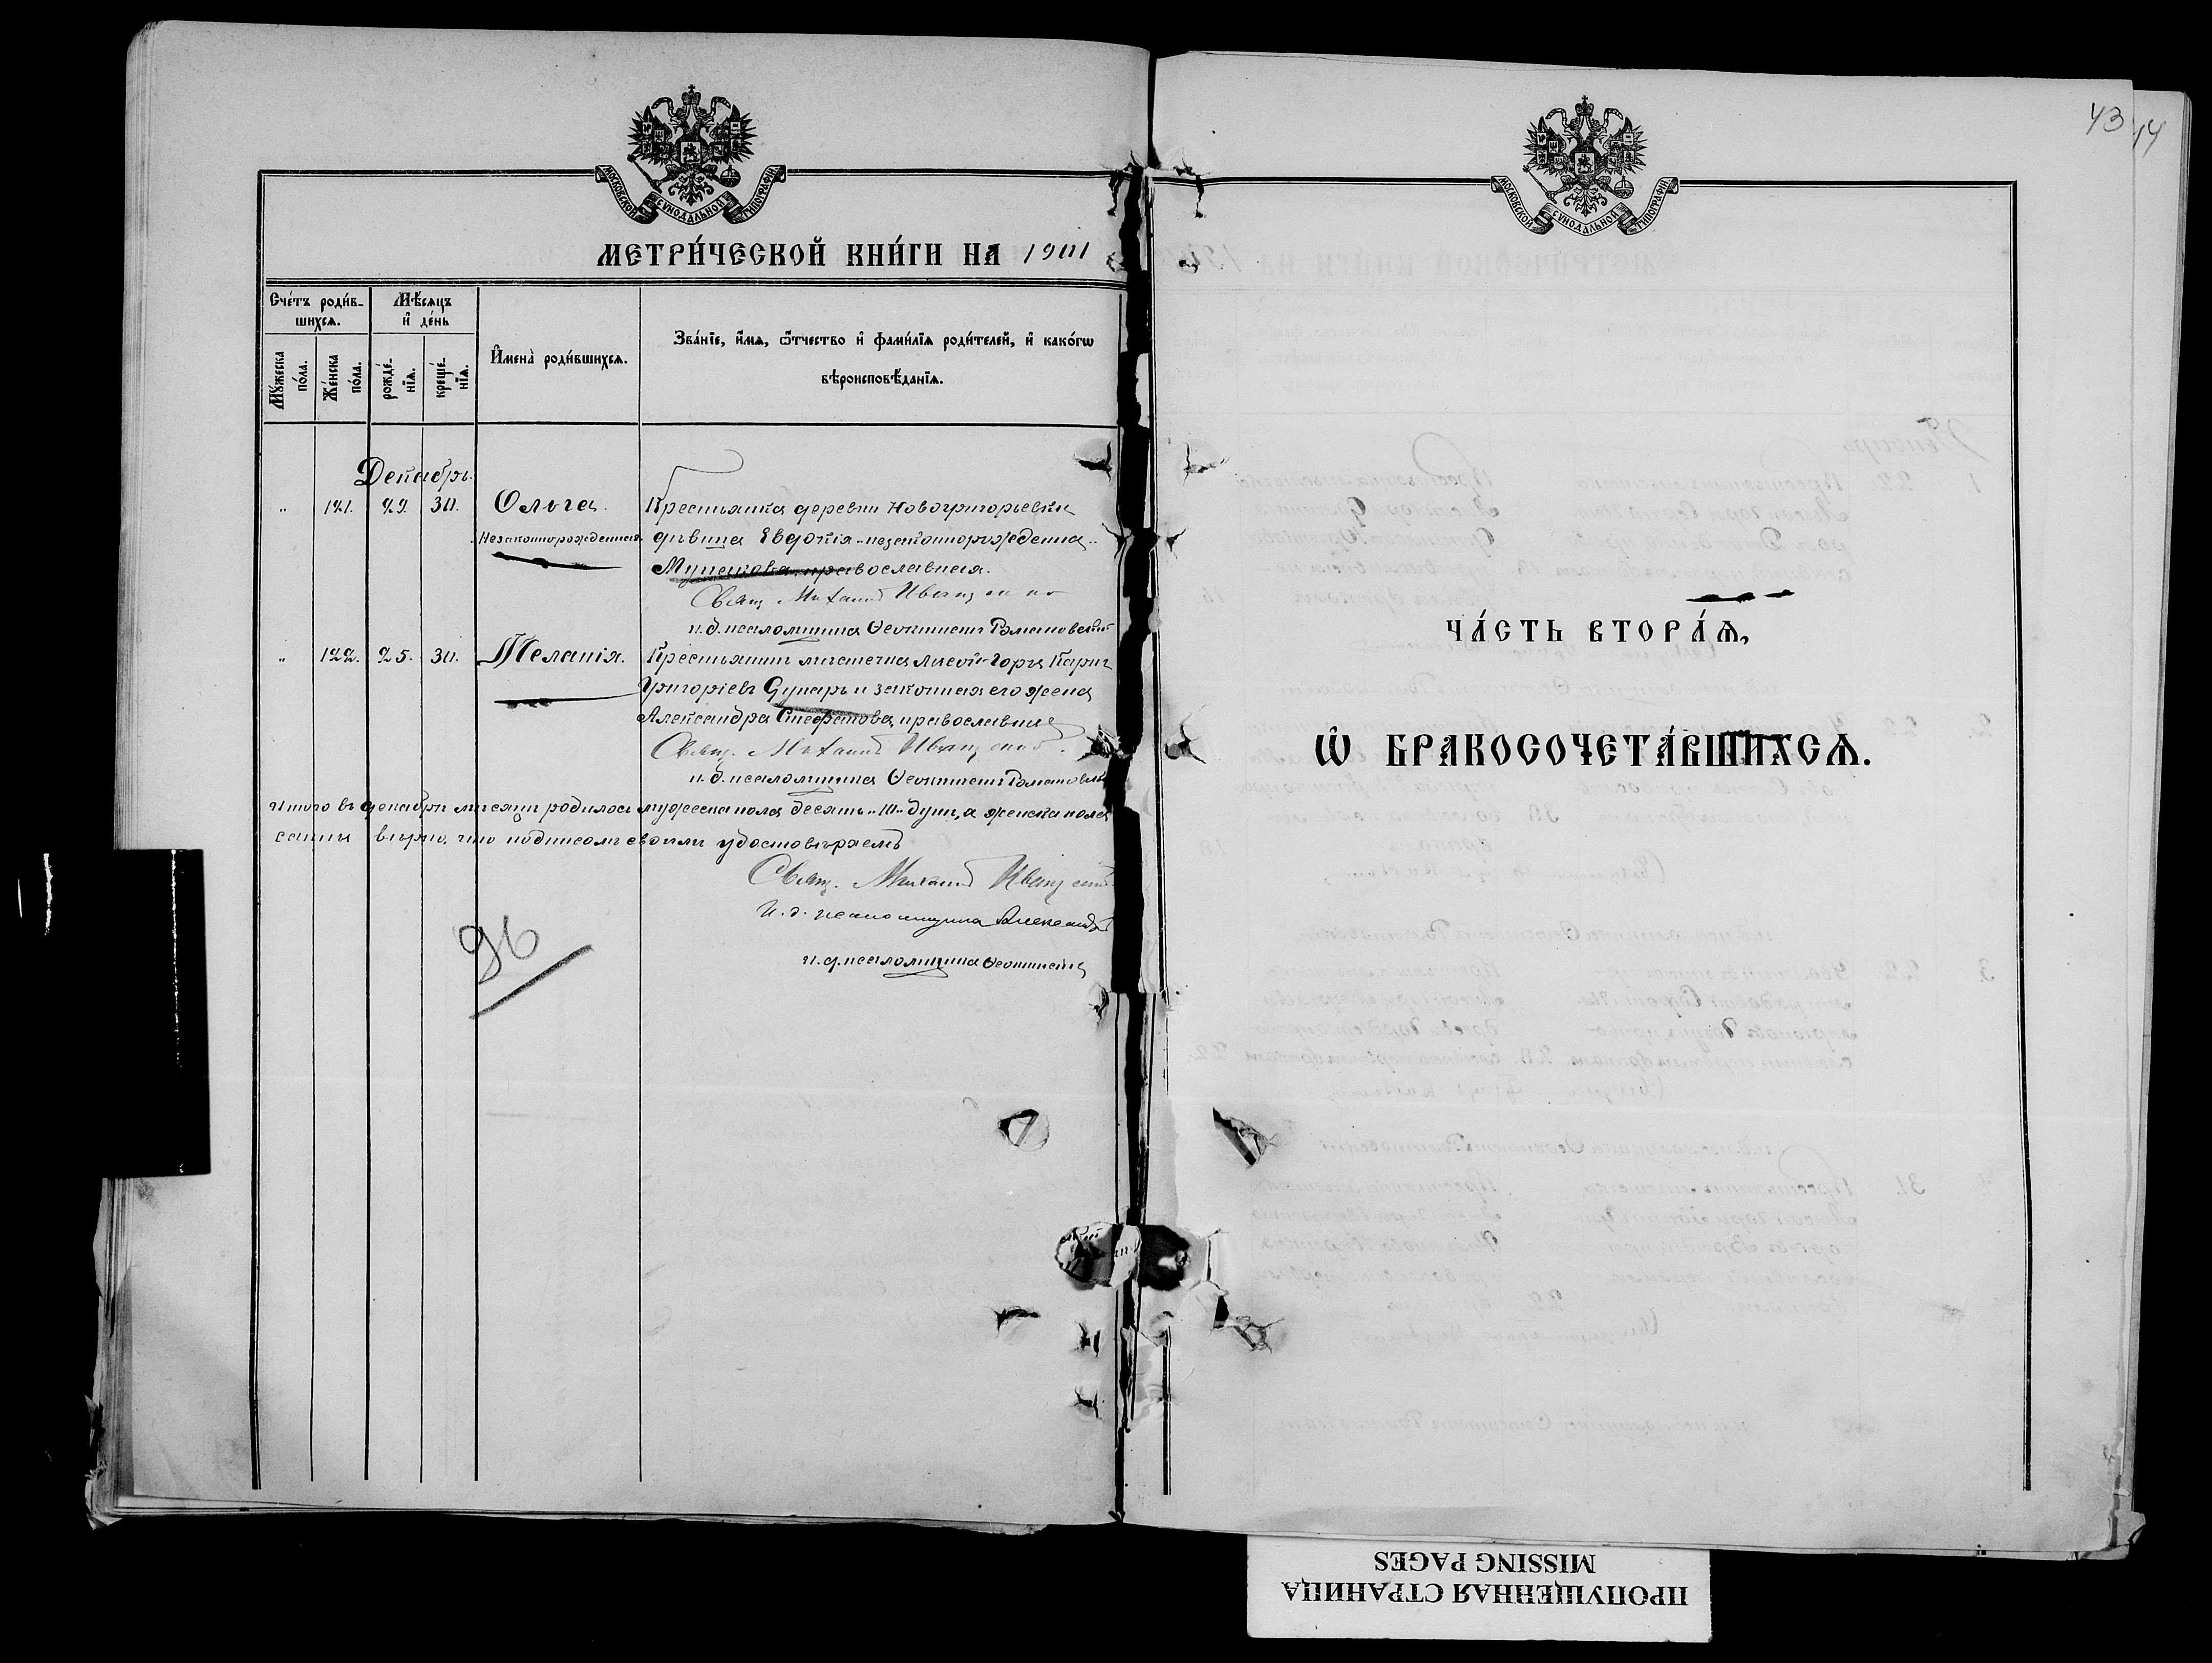 МОСКОВСКОЙ СУНОДАЛЬНОЙ ТИПОГРАФІИ
МЕТРИ́ЧЕСКОЙ КНИ́ГИ НА 1901
Сче́тъ роди́в-
шихсѧ.
Мѣ́сѧцъ
и҆ де́нь
Мꙋ́жеска
по́ла.
Же́нска
по́ла.
рожде́-
нїѧ.
креще́-
нїѧ.
И҆мена̀ роди́вшихсѧ.
Зва́нїе, и҆́мѧ, ѻ҆́тчество и҆ фами́лїѧ роди́телей, и҆ како́гѡ
вѣроисповѣ́данїѧ.
Декабрь.
" 121. 29. 30. Ольга. Крестьянка деревни Новогригорьевки
Незаконнорожденная. дѣвица Евдокія
православная.
Свящ. Михаилъ
и.д. псаломщика Ѳеоктистъ Романовскій
" 122. 25. 30. Меланія. Крестьянинъ мѣстечка Лысой-Горы
Григоріевъ и законная его жена
Александра Стефанова, православные
Свящ. Михаилъ
и.д. псаломщика Ѳеоктистъ Романовскій
Итого въ декабрѣ мѣсяцѣ родилось мужеска пола десять "10" душъ, а женска пола
вѣрно, что подписомъ своимъ удостовѣряемъ
Свящ. Михаилъ
И.д. псаломщика Александръ
и.д. псаломщика Ѳеоктистъ
96
МОСКОВСКОЙ СУНОДАЛЬНОЙ ТИПОГРАФІИ
43
44
ЧА́СТЬ ВТОРА́Ѧ,
Ѡ҆ БРАКОСОЧЕТА́ВШИХСѦ.
ПРОПУЩЕННАЯ СТРАНИЦА
MISSING PAGES